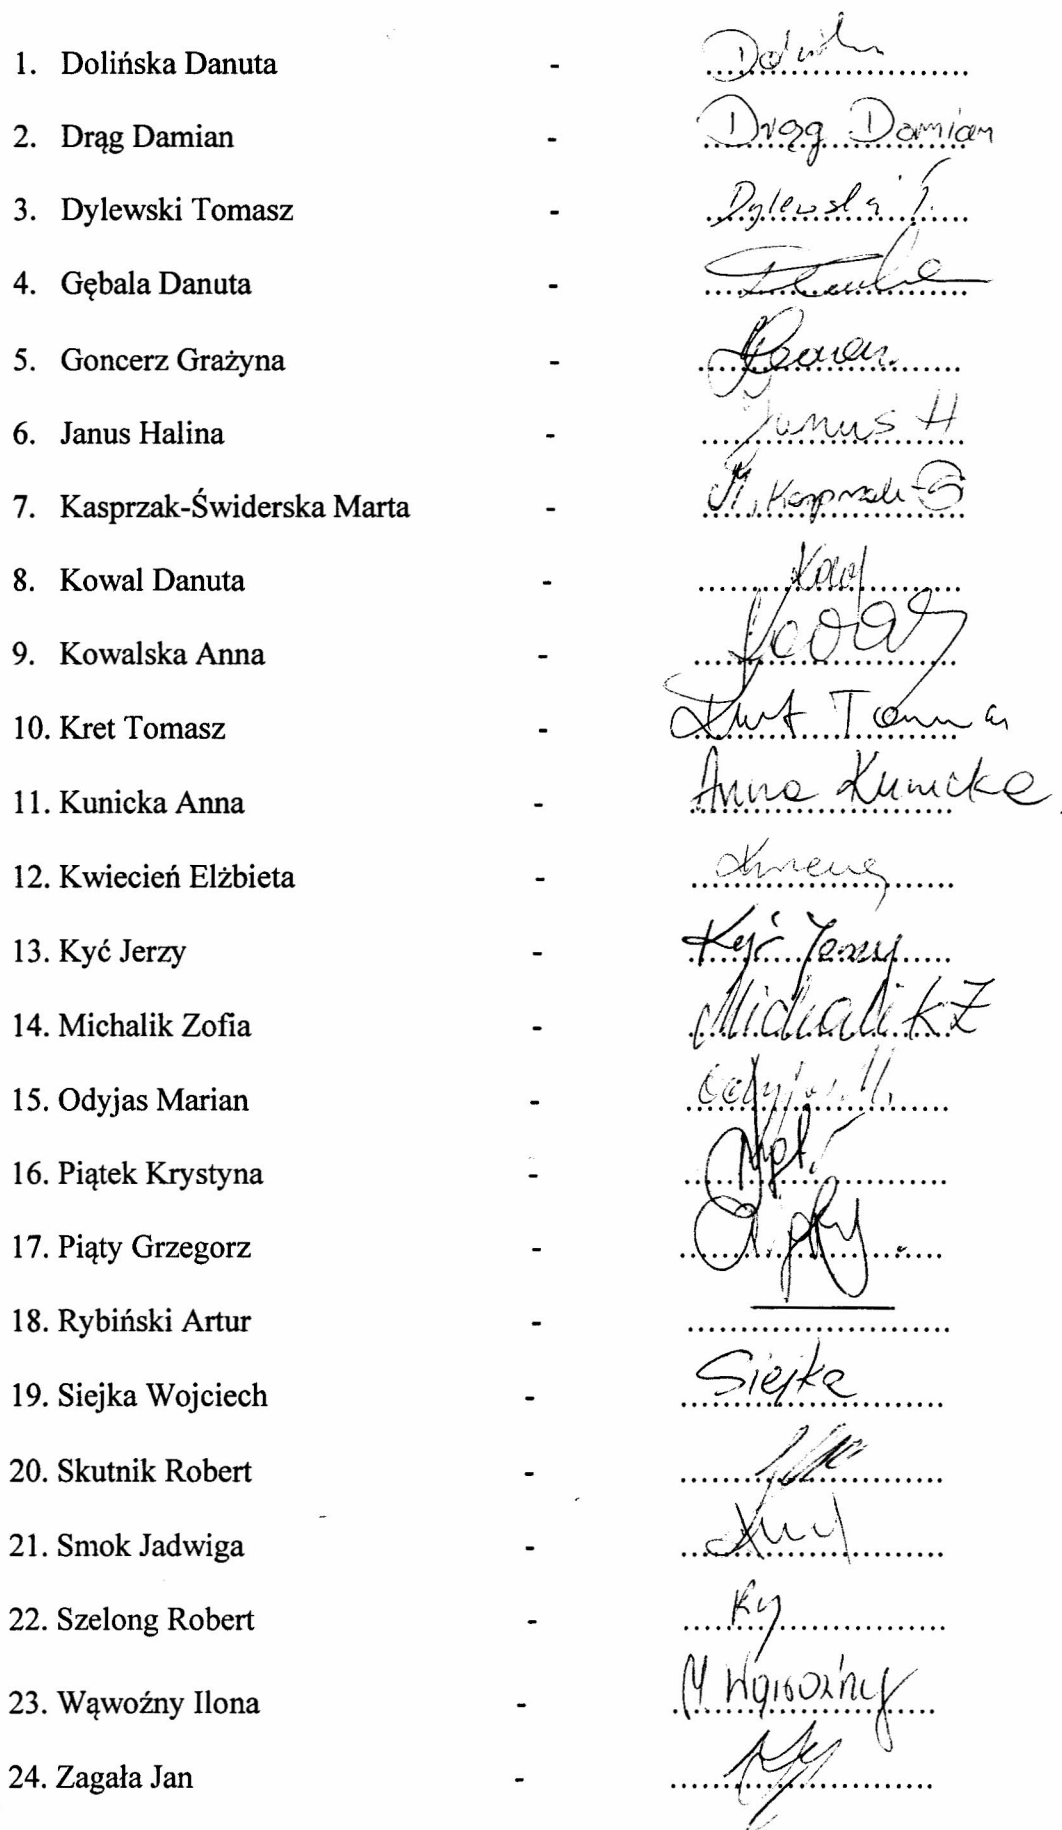 1. Dolińska Danuta -
2. Drąg Damian - Drąg Damian
3. Dylewski Tomasz - Dylewski T.
4. Gębala Danuta -
5. Goncerz Grażyna -
6. Janus Halina - Janus H
7. Kasprzak-Świderska Marta - M. Kasprzak-Ś
8. Kowal Danuta -
9. Kowalska Anna -
10. Kret Tomasz - Kret Tomasz
11. Kunicka Anna - Anna Kunicka
12. Kwiecień Elżbieta -
13. Kyć Jerzy - Kyć Jerzy
14. Michalik Zofia - Michalik Z
15. Odyjas Marian - Odyjas M.
16. Piątek Krystyna -
17. Piąty Grzegorz -
18. Rybiński Artur -
19. Siejka Wojciech - Siejka
20. Skutnik Robert -
21. Smok Jadwiga -
22. Szelong Robert -
23. Wąwoźny Ilona - Wąwoźny
24. Zagała Jan -